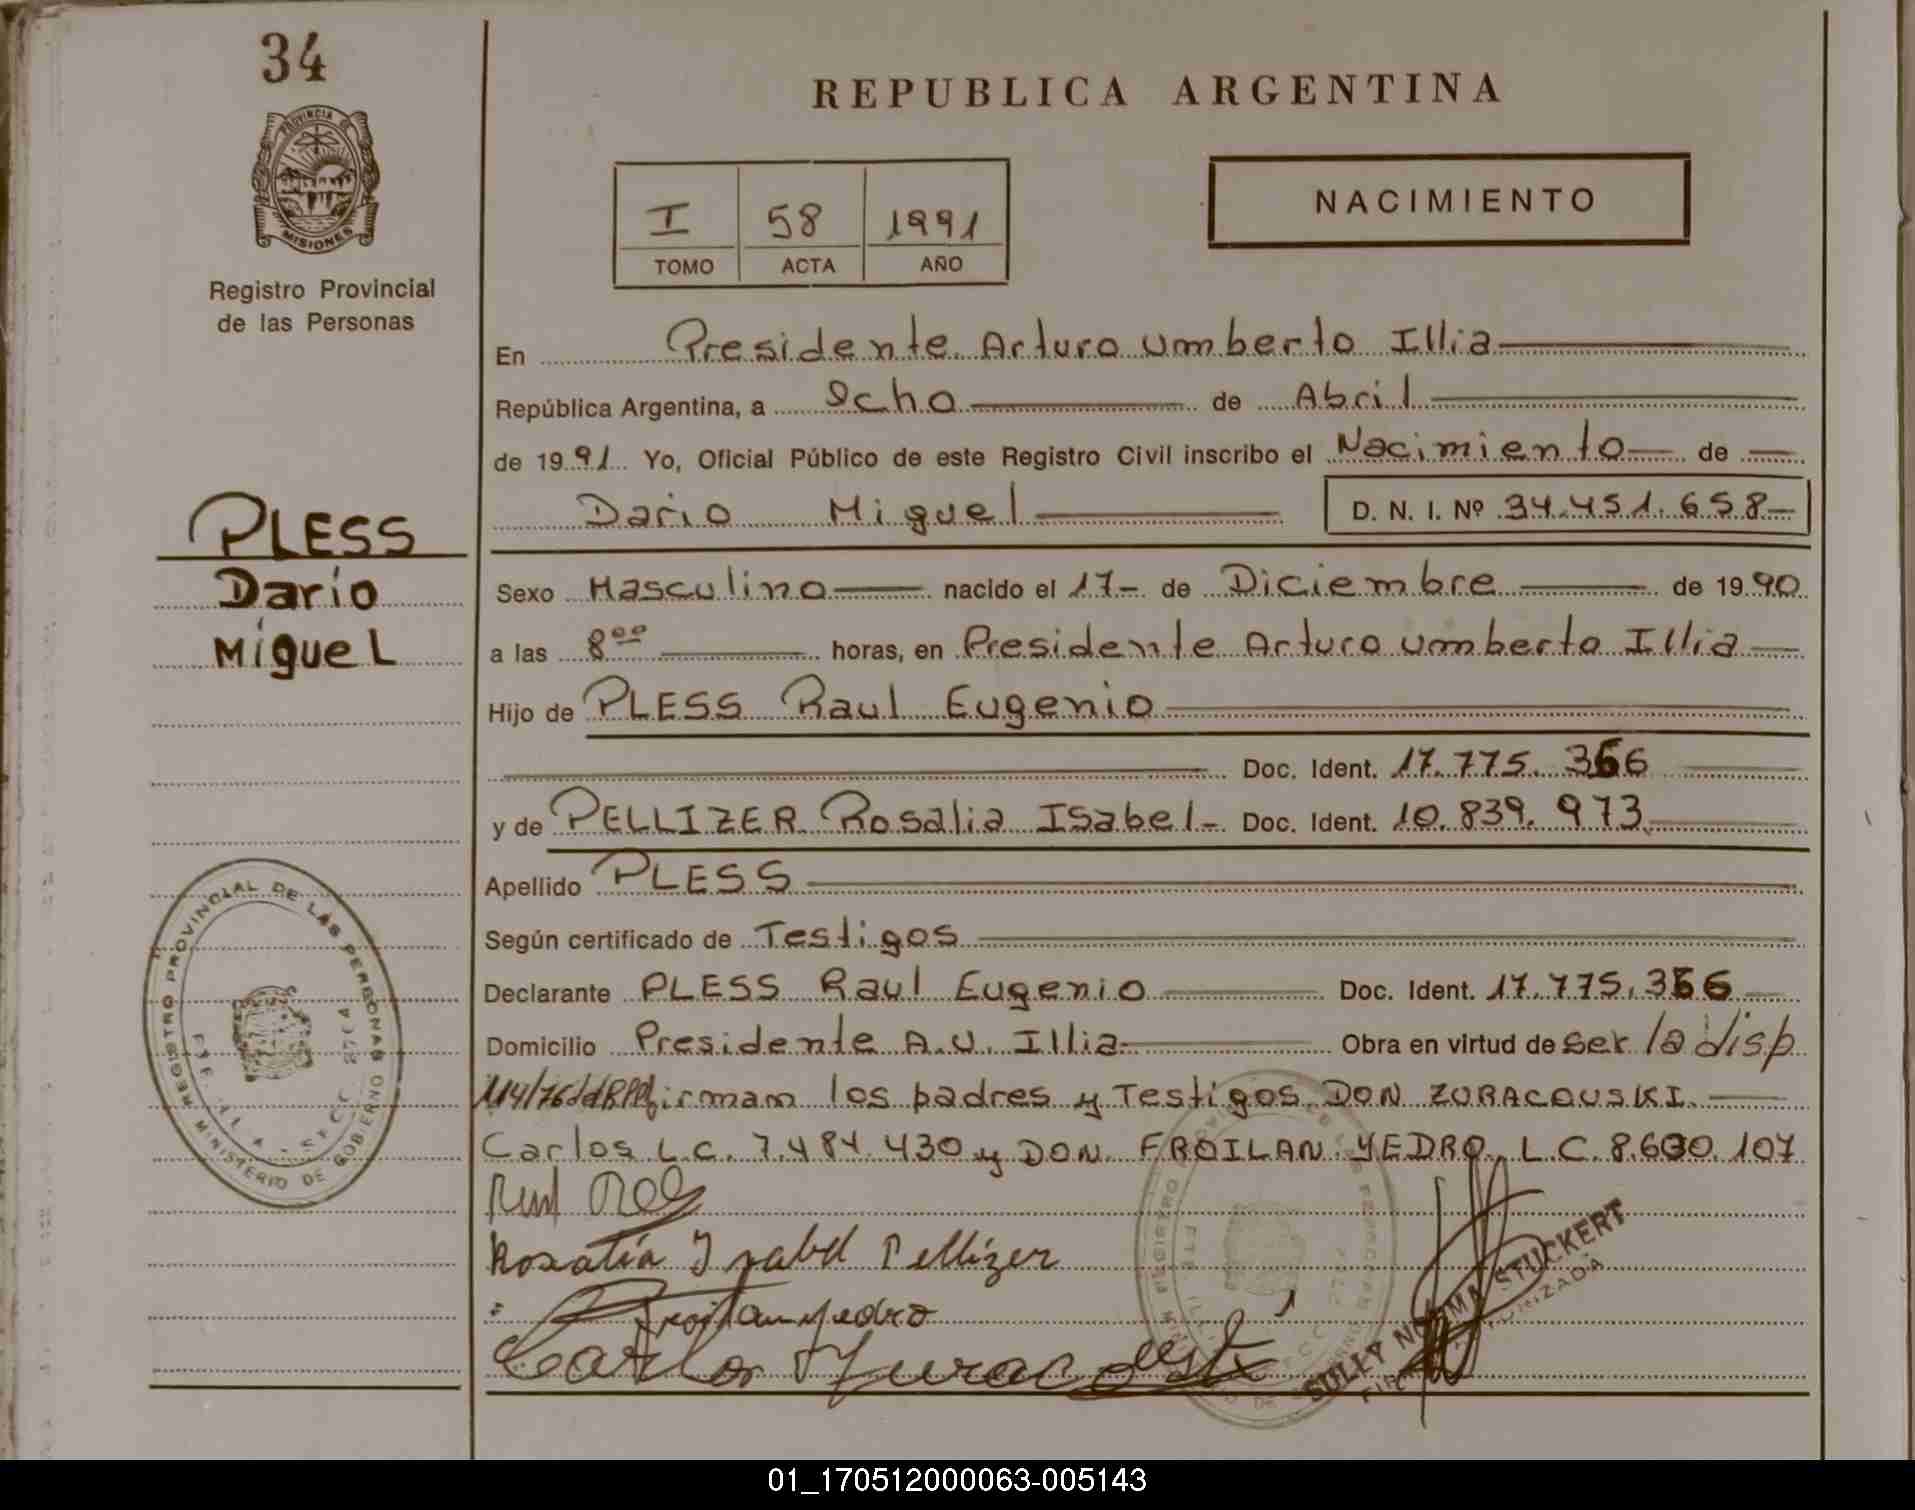 34
PROVINCIA DE
MISIONES
Registro Provincial
de las Personas
REPUBLICA ARGENTINA
I 58 1991
TOMO ACTA AÑO
NACIMIENTO
En Presidente Arturo Umberto Illia
República Argentina, a Ocho de Abril
de 1991 Yo, Oficial Público de este Registro Civil inscribo el Nacimiento de
Dario Miguel D. N. I. Nº 34.451.658
PLESS
Dario
Miguel
Sexo Masculino nacido el 17 de Diciembre de 1990
a las 8⁰⁰ horas, en Presidente Arturo Umberto Illia
Hijo de PLESS Raul Eugenio
Doc. Ident. 17.775.366
y de PELLIZER Rosalia Isabel Doc. Ident. 10.839.973
Apellido PLESS
Según certificado de Testigos
Declarante PLESS Raul Eugenio Doc. Ident. 17.775.366
Domicilio Presidente A.U. Illia Obra en virtud de ser la disp
114/76 firmam los padres y Testigos DON ZURACOUSKI
Carlos L.C. 7.484.430 y DON FROILAN YEDRO L.C. 8.600.107
REGISTRO PROVINCIAL DE LAS PERSONAS
MINISTERIO DE GOBIERNO
Rosalía Isabel Pellizer
Froilan Yedro
Carlos
SULLY NORMA STUCKERT
01_170512000063-005143